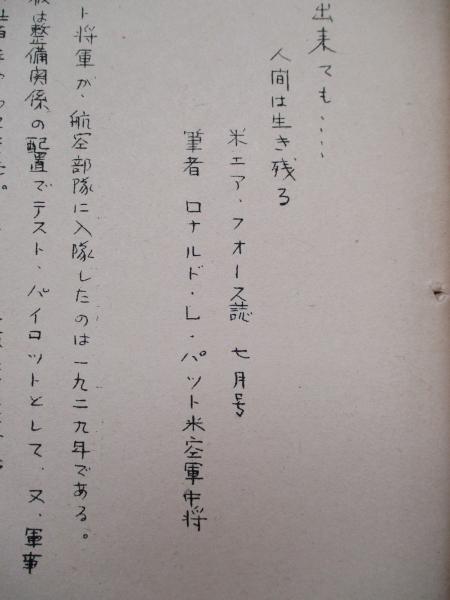 出来ても・・・・
人間は生き残る
米エア、フォース誌 七月号
筆者 ロナルド・L・パット米空軍中将
ト将軍が、航空部隊に入隊したのは一九二九年である。
は整備関係の配置でテスト、パイロットとして、又、軍事